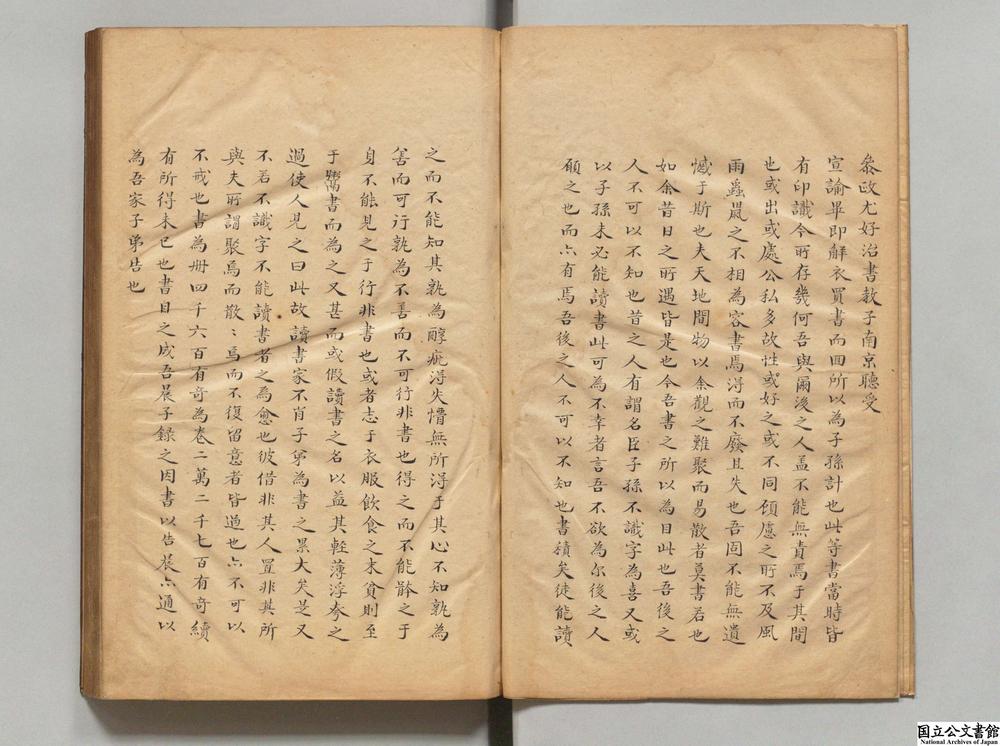 叅政尤好治書教子南京聽受
宣諭畢即觧衣買書而回所以為子孫計也此等書當時皆
有印識今所存幾何吾與爾後之人盖不能無責焉于其間
也或出或處公私多故性或好之或不同傾慮之所不及風
雨蟲鼠之不相為容書焉得而不廢且失也吾固不能無遺
憾于斯也夫天地間物以余觀之難聚而易散者莫書若也
如余昔日之所遇皆是也今吾書之所以為目此也吾後之
人不可以不知也昔之人有謂名臣子孫不識字為喜又或
以子孫未必能讀書此可為不幸者言吾不欲為尔後之人
願之也而亦有焉吾後之人不可以不知也書積矣徒能讀
之而不能知其孰為醇疵得失懵無所得于其心不知孰為
善而可行孰為不善而不可行非書也得之而不能齡之于
身不能見之于行非書也或者志于衣服飲食之末貧則至
于鬻書而為之又甚而或假讀書之名以益其輕薄浮夸之
過使人見之曰此故讀書家不肖子弟為書之累大矣是又
不若不識字不能讀書者之為愈也彼借非其人置非其所
與夫所謂聚焉而散〻焉而不復留意者皆過也亦不可以
不戒也書為冊四千六百有奇為卷二萬二千七百有奇續
有所得未已也書目之成吾晨子録之因書以告晨亦通以
為吾家子弟告也
国立公文書館
National Archives of Japan